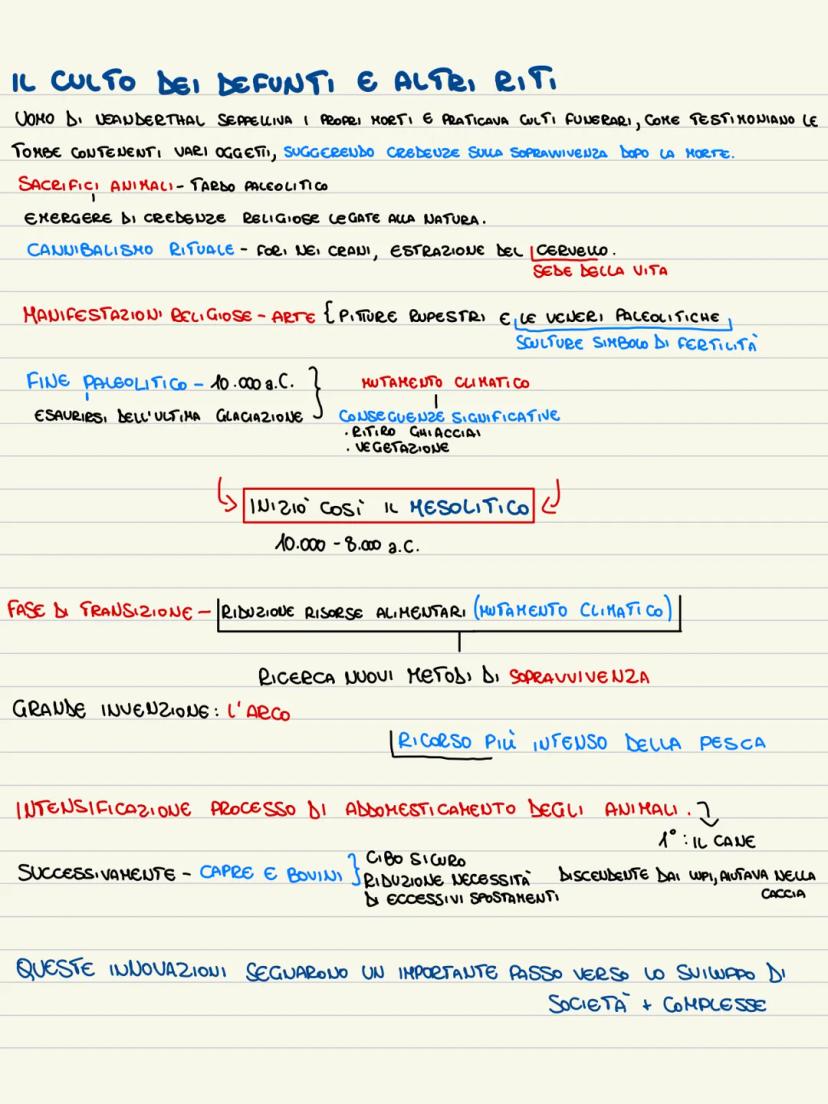 IL CULTO DEI DEFUNTI E ALTRI RITI
UOMO DI NEANDERTHAL SEPPELLIVA I PROPRI MORTI E PRATICAVA CULTI FUNERARI, COME TESTIMONIANO LE
TOMBE CONTENENTI VARI OGGETTI, SUGGERENDO CREDENZE SULLA SOPRAVVIVENZA DOPO LA MORTE.
SACRIFICI ANIMALI - TARDO PALEOLITICO
EMERGERE DI CREDENZE RELIGIOSE LEGATE ALLA NATURA.
CANNIBALISMO RITUALE - FORI NEI CRANI, ESTRAZIONE DEL CERVELLO.
SEDE DELLA VITA
MANIFESTAZIONI RELIGIOSE - ARTE { PITTURE RUPESTRI E LE VENERI PALEOLITICHE
SCULTURE SIMBOLO DI FERTILITÀ
FINE PALEOLITICO - 10.000 a.C. } MUTAMENTO CLIMATICO
ESAURIRSI DELL'ULTIMA GLACIAZIONE CONSEGUENZE SIGNIFICATIVE
. RITIRO GHIACCIAI
. VEGETAZIONE
INIZIÒ COSÌ IL MESOLITICO
10.000 - 8.000 a.C.
FASE DI TRANSIZIONE - RIDUZIONE RISORSE ALIMENTARI (MUTAMENTO CLIMATICO)
RICERCA NUOVI METODI DI SOPRAVVIVENZA
GRANDE INVENZIONE: L'ARCO
RICORSO PIÙ INTENSO DELLA PESCA
INTENSIFICAZIONE PROCESSO DI ADDOMESTICAMENTO DEGLI ANIMALI.
1°: IL CANE
SUCCESSIVAMENTE - CAPRE E BOVINI } CIBO SICURO
RIDUZIONE NECESSITÀ DISCENDENTE DAI LUPI, AIUTAVA NELLA
DI ECCESSIVI SPOSTAMENTI CACCIA
QUESTE INNOVAZIONI SEGNARONO UN IMPORTANTE PASSO VERSO LO SVILUPPO DI
SOCIETÀ + COMPLESSE